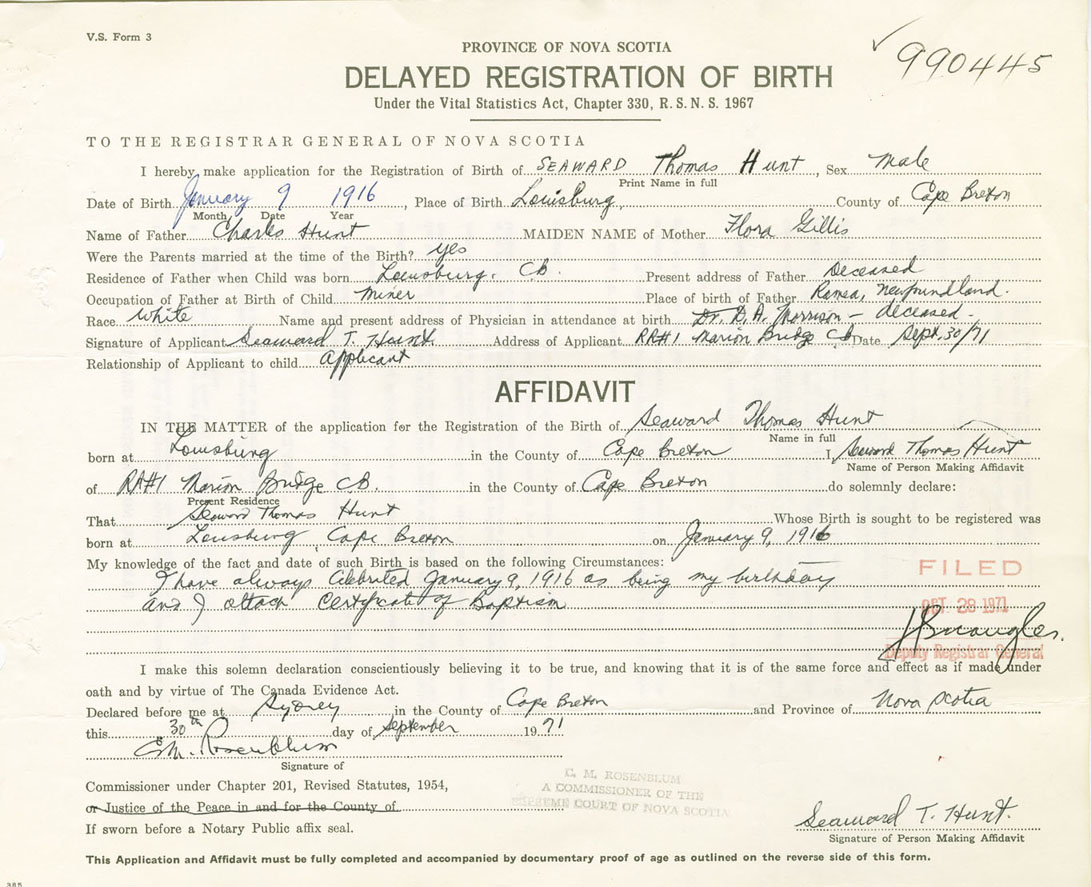 V.S. Form 3
990445
PROVINCE OF NOVA SCOTIA
DELAYED REGISTRATION OF BIRTH
Under the Vital Statistics Act, Chapter 330, R. S. N. S. 1967
TO THE REGISTRAR GENERAL OF NOVA SCOTIA
I hereby make application for the Registration of Birth of SEAWARD Thomas Hunt, Sex Male
Print Name in full
Date of Birth January 9 1916, Place of Birth Louisburg, County of Cape Breton
Month Date Year
Name of Father Charles Hunt MAIDEN NAME of Mother Flora Gillis
Were the Parents married at the time of the Birth? yes
Residence of Father when Child was born Louisburg, CB. Present address of Father Deceased
Occupation of Father at Birth of Child miner Place of birth of Father Ramea, Newfoundland.
Race White Name and present address of Physician in attendance at birth Dr. D.A. Morrison - deceased.
Signature of Applicant Seaward T. Hunt Address of Applicant RR#1 Marion Bridge CB Date Sept. 30/71
Relationship of Applicant to child applicant
AFFIDAVIT
IN THE MATTER of the application for the Registration of the Birth of Seaward Thomas Hunt
Name in full
born at Louisburg in the County of Cape Breton I, Seaward Thomas Hunt
Name of Person Making Affidavit
of RR#1 Marion Bridge CB. in the County of Cape Breton do solemnly declare:
Present Residence
That Seaward Thomas Hunt Whose Birth is sought to be registered was
born at Louisburg, Cape Breton on January 9, 1916
My knowledge of the fact and date of such Birth is based on the following Circumstances:
I have always celebrited January 9, 1916 as being my birthday
and I attach Certificate of Baptism
FILED
OCT. 28 1971
Deputy Registrar General
I make this solemn declaration conscientiously believing it to be true, and knowing that it is of the same force and effect as if made under
oath and by virtue of The Canada Evidence Act.
Declared before me at Sydney in the County of Cape Breton and Province of Nova Scotia
this 30th day of September 1971
C.M. Rosenblum
Signature of
Commissioner under Chapter 201, Revised Statutes, 1954,
or Justice of the Peace in and for the County of
If sworn before a Notary Public affix seal.
C. M. ROSENBLUM
A COMMISSIONER OF THE
SUPREME COURT OF NOVA SCOTIA
Seaward T. Hunt.
Signature of Person Making Affidavit
This Application and Affidavit must be fully completed and accompanied by documentary proof of age as outlined on the reverse side of this form.